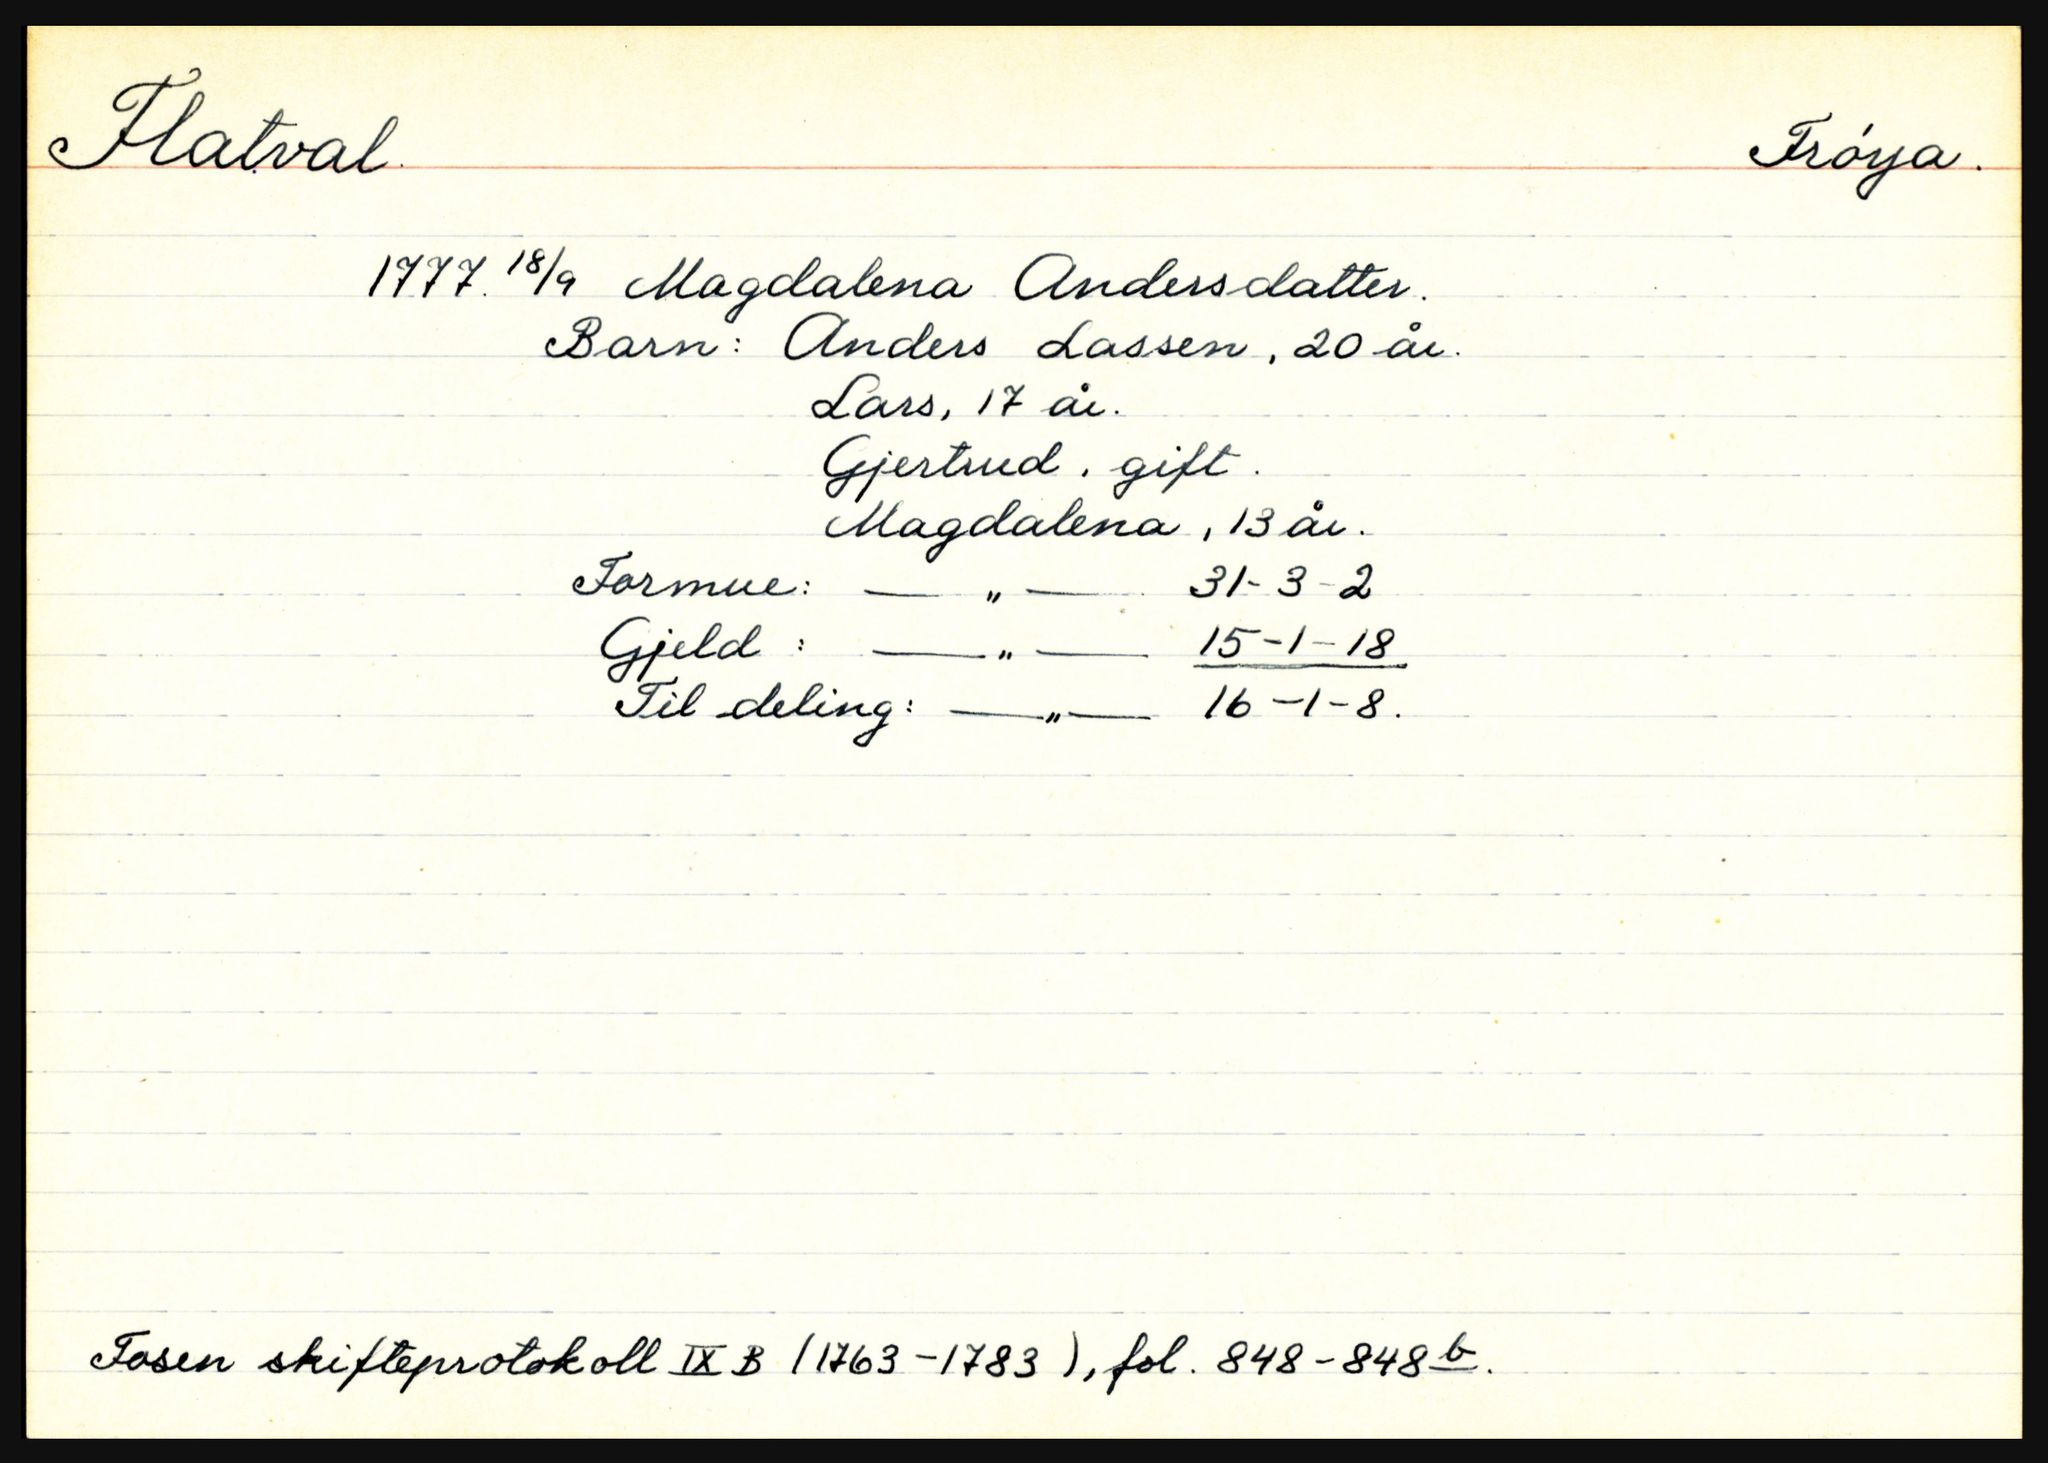 Flatval. Frøya.
1777. 18/9 Magdalena Andersdatter.
Barn: Anders Lassen, 20 år.
Lars, 17 år.
Gjertrud, gift.
Magdalena, 13 år.
Formue: — „ — 31-3-2
Gjeld: — „ — 15-1-18
Til deling: — „ — 16-1-8.
Fosen skifteprotokoll IX B (1763-1783), fol. 848-848 b.